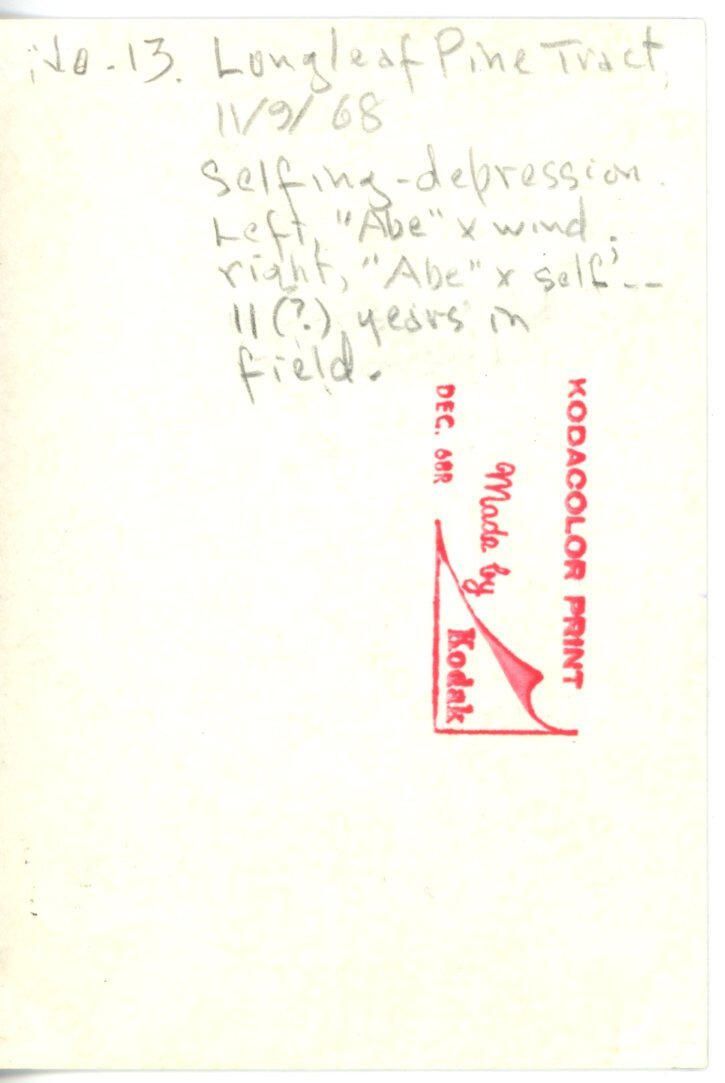 No. 13. Longleaf Pine Tract,
11/9/68
Selfing-depression.
Left, "Abe" x wind;
right, "Abe" x self --
11(?) years in
field.
KODACOLOR PRINT
Made by
Kodak
DEC. 68R